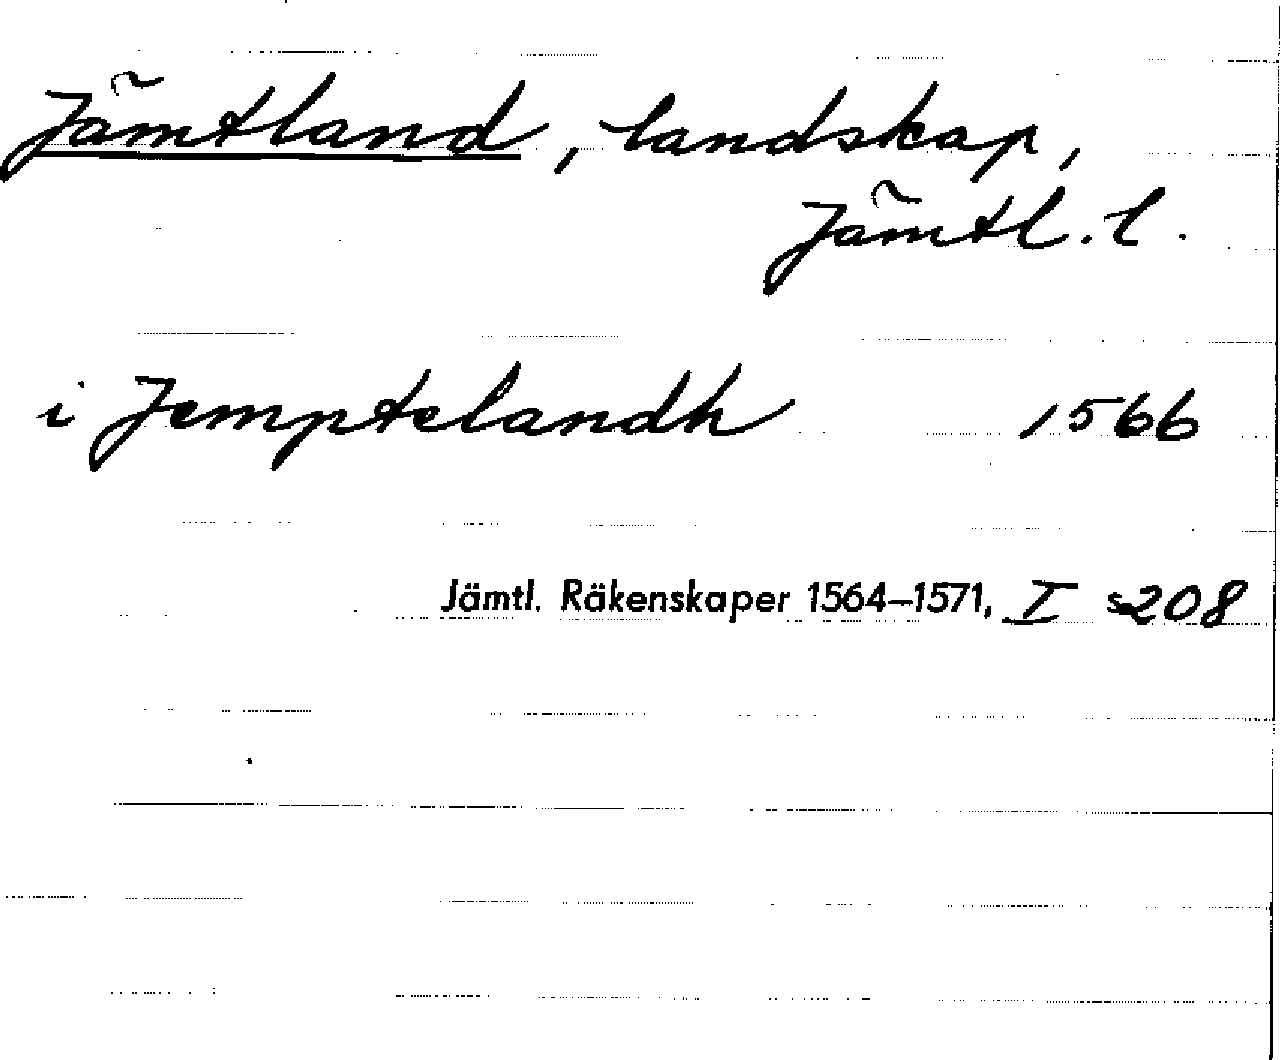 Jämtland, landskap,
Jämtl. l.
i Jemptelandh 1566
Jämtl. Räkenskaper 1564–1571, I s 208